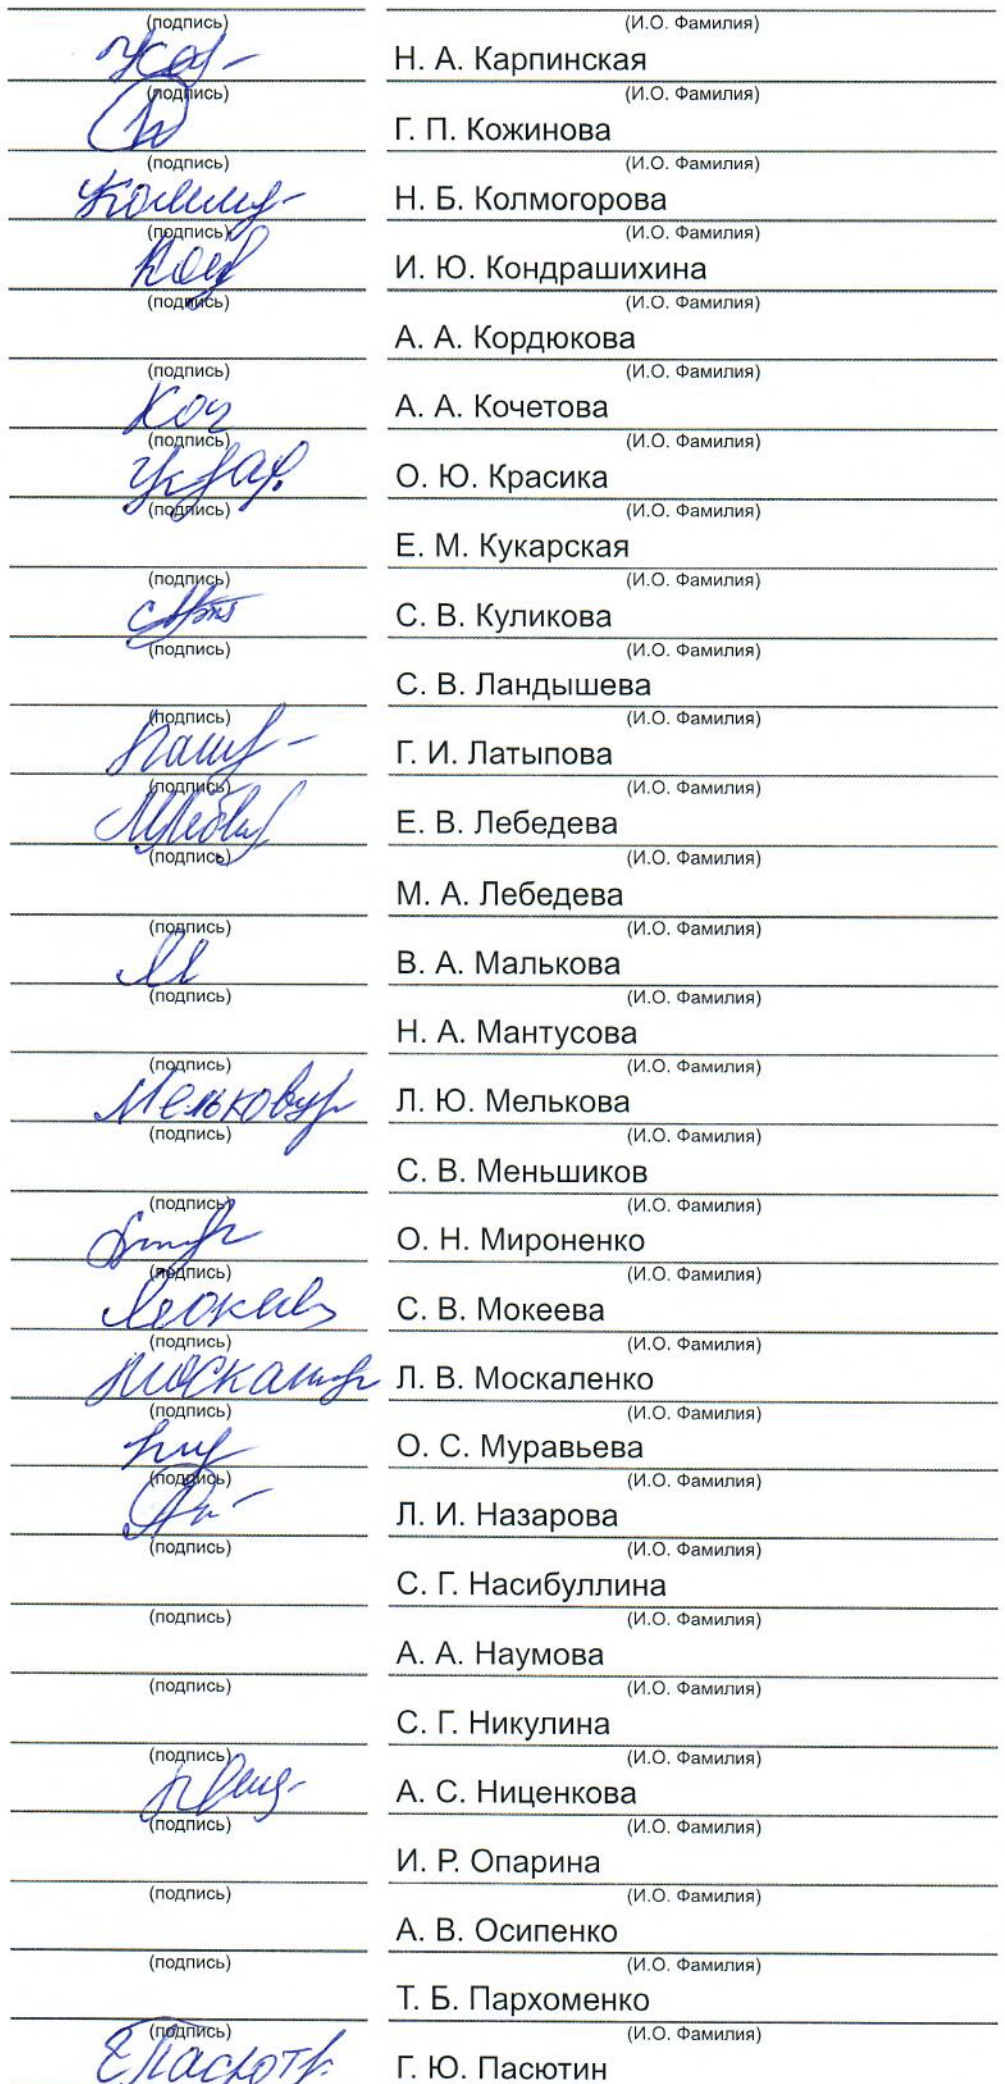 (подпись) (И.О. Фамилия)
Н. А. Карпинская
(подпись) (И.О. Фамилия)
Г. П. Кожинова
(подпись) (И.О. Фамилия)
Н. Б. Колмогорова
(подпись) (И.О. Фамилия)
И. Ю. Кондрашихина
(подпись) (И.О. Фамилия)
А. А. Кордюкова
(подпись) (И.О. Фамилия)
Коч А. А. Кочетова
(подпись) (И.О. Фамилия)
О. Ю. Красика
(подпись) (И.О. Фамилия)
Е. М. Кукарская
(подпись) (И.О. Фамилия)
С. В. Куликова
(подпись) (И.О. Фамилия)
С. В. Ландышева
(подпись) (И.О. Фамилия)
Г. И. Латыпова
(подпись) (И.О. Фамилия)
Е. В. Лебедева
(подпись) (И.О. Фамилия)
М. А. Лебедева
(подпись) (И.О. Фамилия)
В. А. Малькова
(подпись) (И.О. Фамилия)
Н. А. Мантусова
(подпись) (И.О. Фамилия)
Л. Ю. Мелькова
(подпись) (И.О. Фамилия)
С. В. Меньшиков
(подпись) (И.О. Фамилия)
О. Н. Мироненко
(подпись) (И.О. Фамилия)
С. В. Мокеева
(подпись) (И.О. Фамилия)
Л. В. Москаленко
(подпись) (И.О. Фамилия)
О. С. Муравьева
(подпись) (И.О. Фамилия)
Л. И. Назарова
(подпись) (И.О. Фамилия)
С. Г. Насибуллина
(подпись) (И.О. Фамилия)
А. А. Наумова
(подпись) (И.О. Фамилия)
С. Г. Никулина
(подпись) (И.О. Фамилия)
А. С. Ниценкова
(подпись) (И.О. Фамилия)
И. Р. Опарина
(подпись) (И.О. Фамилия)
А. В. Осипенко
(подпись) (И.О. Фамилия)
Т. Б. Пархоменко
(подпись) (И.О. Фамилия)
Г. Ю. Пасютин